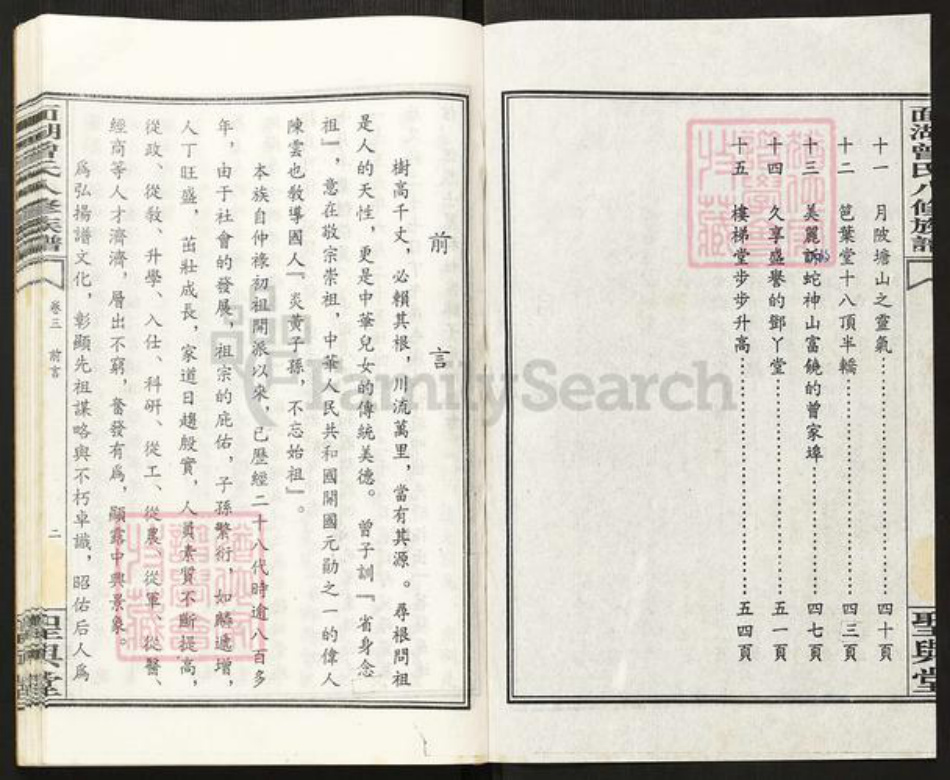 面湖曾氏八修族譜
聖與堂
十一 月陂塘山之靈氣……四十頁
十二 笆葉堂十八頂半轎……四三頁
十三 美麗訴蛇神山富饒的曾家埠……四七頁
十四 久享盛譽的鄧丫堂……五一頁
十五 樓梯堂步步升高……五四頁
前言
樹高千丈，必賴其根，川流萬里，當有其源。尋根問祖
是人的天性，更是中華兒女的傳統美德。曾子訓「省身念
祖」，意在敬宗崇祖，中華人民共和國開國元勛之一的偉人
陳雲也教導國人「炎黃子孫，不忘始祖」。
本族自仲祿初祖開派以來，已歷經二十八代時逾八百多
年，由于社會的發展，祖宗的庇佑，子孫繁衍，如麟遞增，
人丁旺盛，茁壯成長，家道日趨殷實，人員素質不斷提高，
從政、從教、升學、入仕、科研、從工、從農、從軍、從醫、
經商等人才濟濟，層出不窮，奮發有爲，顯露中興景象。
爲弘揚譜文化，彰顯先祖謀略與不朽卓識，昭佑后人爲
面湖曾氏八修族譜
卷三 前言
二
聖與堂
FamilySearch